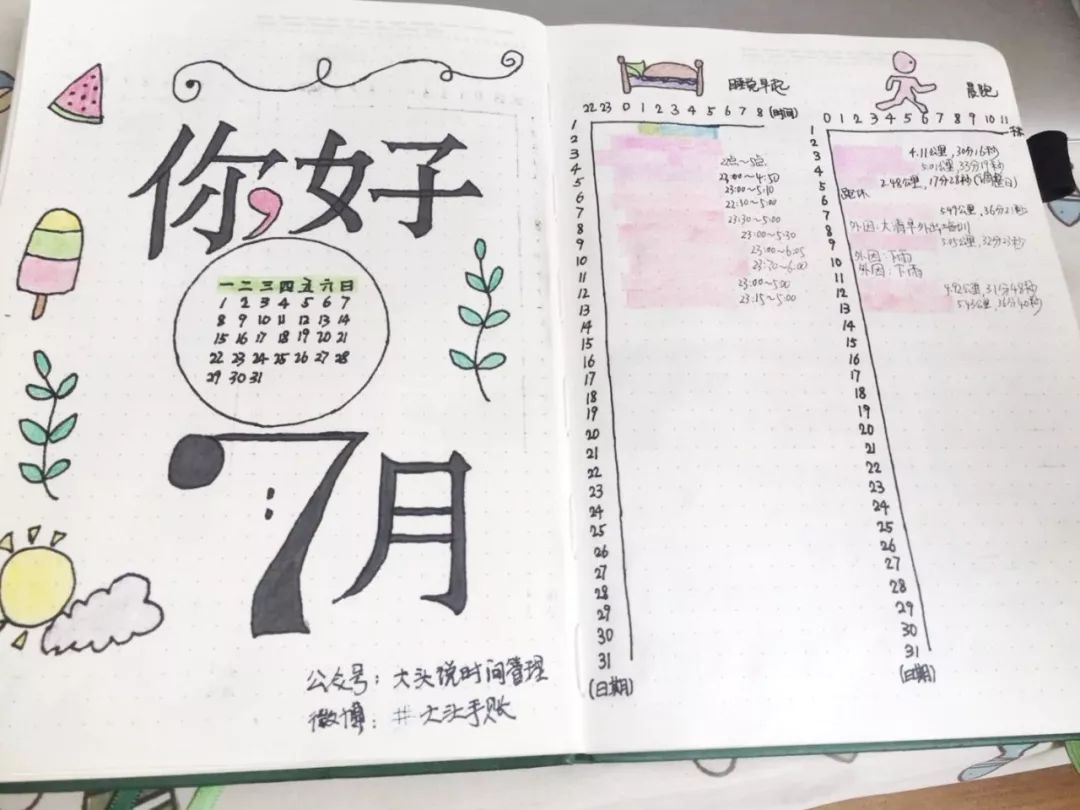 你,好
一二三四五六日
1 2 3 4 5 6 7
8 9 10 11 12 13 14
15 16 17 18 19 20 21
22 23 24 25 26 27 28
29 30 31
7月
公众号：大头说时间管理
微博：#大头手账
早起
22 23 0 1 2 3 4 5 6 7 8 (时间)
1
2
3
4
5
6
7
8
9
10
11
12
13
14
15
16
17
18
19
20
21
22
23
24
25
26
27
28
29
30
31
(日期)
2点~5点
23:00~4:50
23:00~5:10
22:30~5:00
23:30~5:00
23:00~5:30
23:00~6:05
23:30~6:00
23:00~5:00
23:15~5:00
晨跑
0 1 2 3 4 5 6 7 8 9 10 11
1
2
3
4
5
6
7
8
9
10
11
12
13
14
15
16
17
18
19
20
21
22
23
24
25
26
27
28
29
30
31
(日期)
4.11公里,30分16秒
5.01公里,33分19秒
2.48公里,17分28秒(调整日)
跑休
5.49公里,36分21秒
外因:大清早外出培训
5.05公里,32分23秒
外因:下雨
外因:下雨
4.92公里,31分48秒
5.43公里,36分40秒